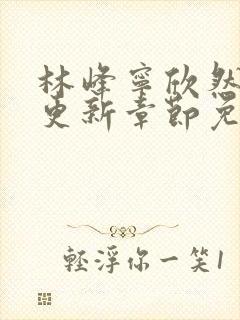 林峰寧欣然
更新章節免
輕浮你一笑1